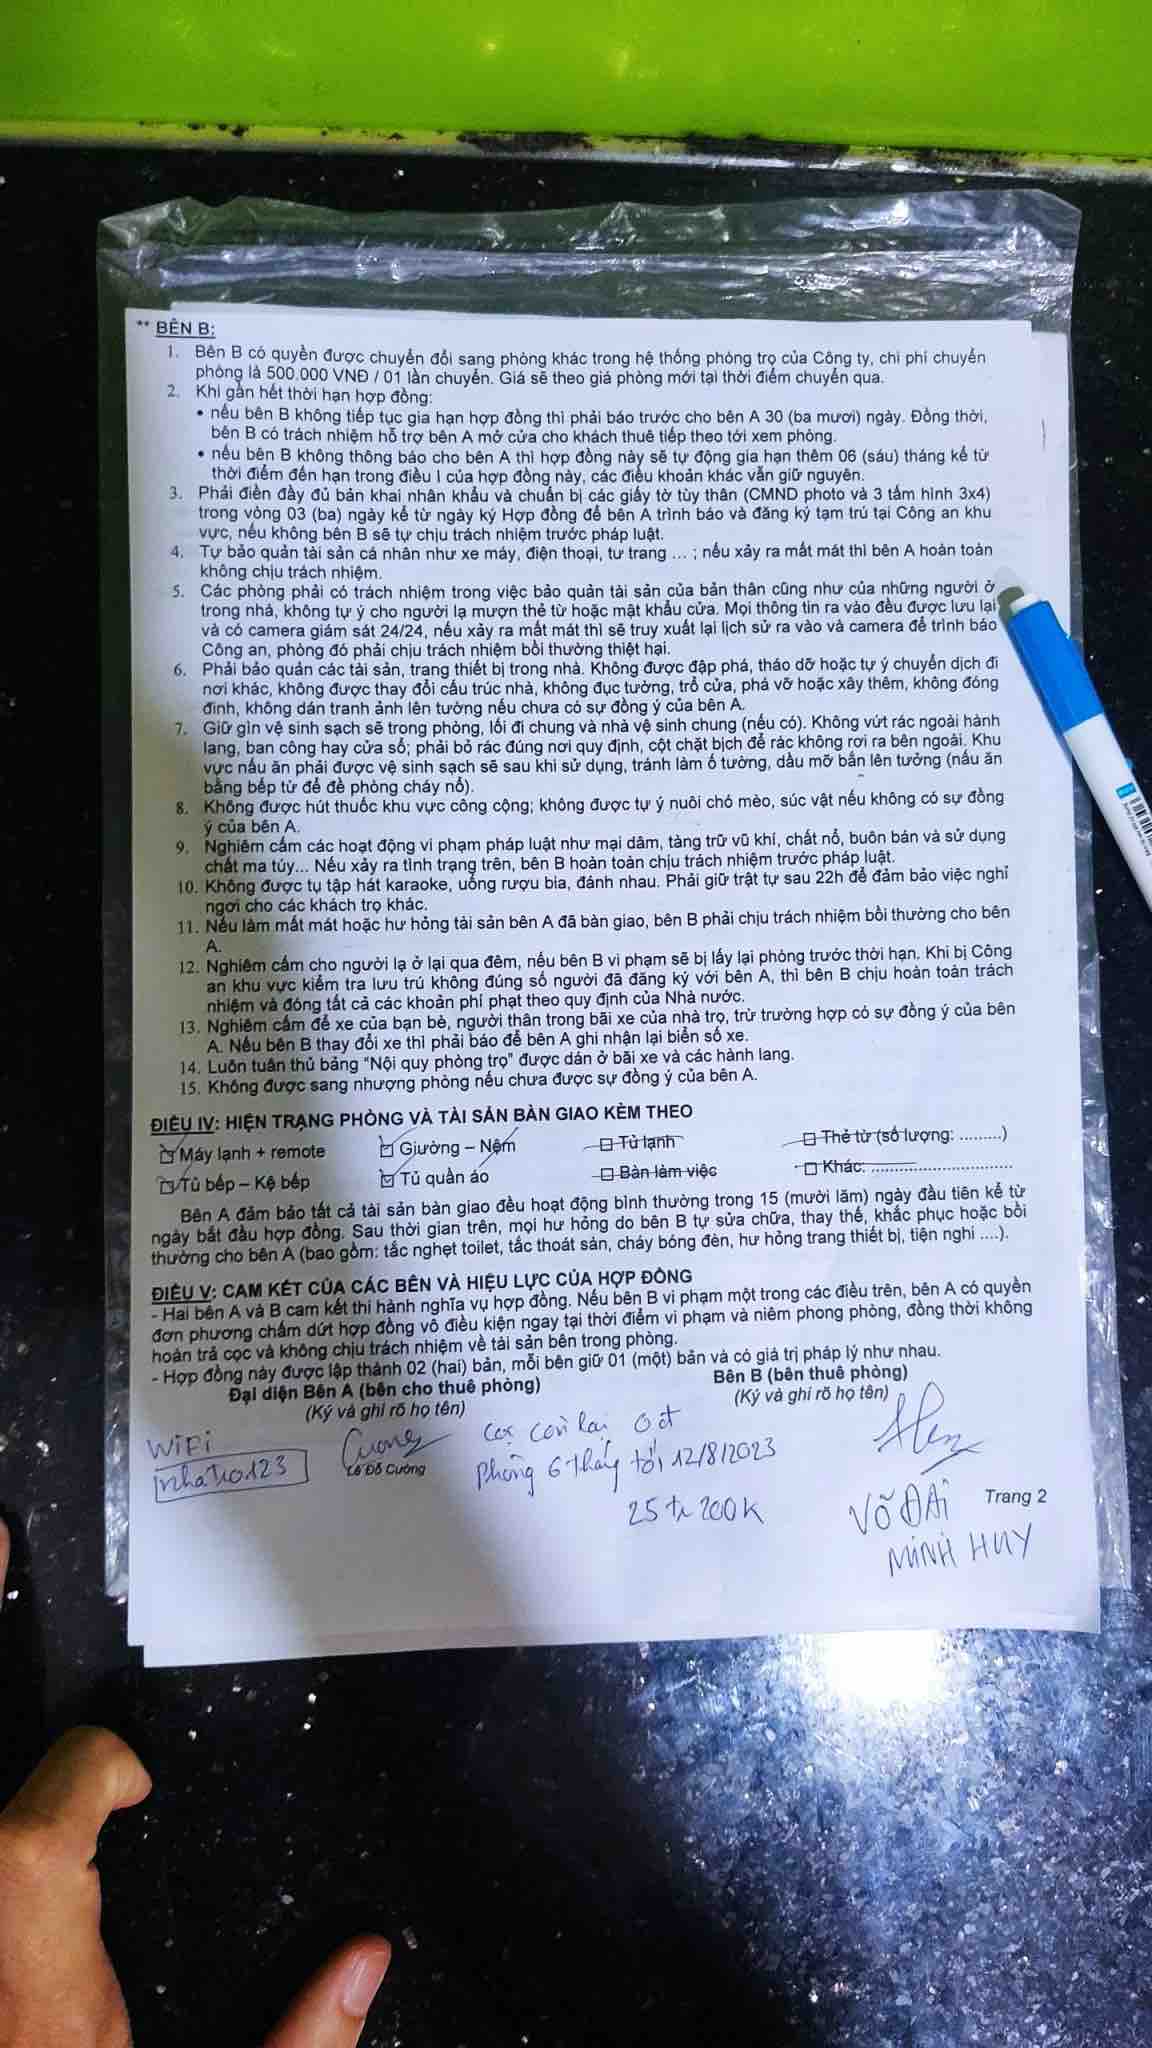 ** BÊN B:
1. Bên B có quyền được chuyển đổi sang phòng khác trong hệ thống phòng trọ của Công ty, chi phí chuyển
phòng là 500.000 VNĐ / 01 lần chuyển. Giá sẽ theo giá phòng mới tại thời điểm chuyển qua.
2. Khi gần hết thời hạn hợp đồng:
• nếu bên B không tiếp tục gia hạn hợp đồng thì phải báo trước cho bên A 30 (ba mươi) ngày. Đồng thời,
bên B có trách nhiệm hỗ trợ bên A mở cửa cho khách thuê tiếp theo tới xem phòng.
• nếu bên B không thông báo cho bên A thì hợp đồng này sẽ tự động gia hạn thêm 06 (sáu) tháng kể từ
thời điểm đến hạn trong điều I của hợp đồng này, các điều khoản khác vẫn giữ nguyên.
3. Phải điền đầy đủ bản khai nhân khẩu và chuẩn bị các giấy tờ tùy thân (CMND photo và 3 tấm hình 3x4)
trong vòng 03 (ba) ngày kể từ ngày ký Hợp đồng để bên A trình báo và đăng ký tạm trú tại Công an khu
vực, nếu không bên B sẽ tự chịu trách nhiệm trước pháp luật.
4. Tự bảo quản tài sản cá nhân như xe máy, điện thoại, tư trang ... ; nếu xảy ra mất mát thì bên A hoàn toàn
không chịu trách nhiệm.
5. Các phòng phải có trách nhiệm trong việc bảo quản tài sản của bản thân cũng như của những người ở
trong nhà, không tự ý cho người lạ mượn thẻ từ hoặc mật khẩu cửa. Mọi thông tin ra vào đều được lưu lại
và có camera giám sát 24/24, nếu xảy ra mất mát thì sẽ truy xuất lại lịch sử ra vào và camera để trình báo
Công an, phòng đó phải chịu trách nhiệm bồi thường thiệt hại.
6. Phải bảo quản các tài sản, trang thiết bị trong nhà. Không được đập phá, tháo dỡ hoặc tự ý chuyển dịch đi
nơi khác, không được thay đổi cấu trúc nhà, không đục tường, trổ cửa, phá vỡ hoặc xây thêm, không đóng
đinh, không dán tranh ảnh lên tường nếu chưa có sự đồng ý của bên A.
7. Giữ gìn vệ sinh sạch sẽ trong phòng, lối đi chung và nhà vệ sinh chung (nếu có). Không vứt rác ngoài hành
lang, ban công hay cửa sổ; phải bỏ rác đúng nơi quy định, cột chặt bịch để rác không rơi ra bên ngoài. Khu
vực nấu ăn phải được vệ sinh sạch sẽ sau khi sử dụng, tránh làm ố tường, dầu mỡ bắn lên tường (nấu ăn
bằng bếp từ để đề phòng cháy nổ).
8. Không được hút thuốc khu vực công cộng; không được tự ý nuôi chó mèo, súc vật nếu không có sự đồng
ý của bên A.
9. Nghiêm cấm các hoạt động vi phạm pháp luật như mại dâm, tàng trữ vũ khí, chất nổ, buôn bán và sử dụng
chất ma túy... Nếu xảy ra tình trạng trên, bên B hoàn toàn chịu trách nhiệm trước pháp luật.
10. Không được tụ tập hát karaoke, uống rượu bia, đánh nhau. Phải giữ trật tự sau 22h để đảm bảo việc nghỉ
ngơi cho các khách trọ khác.
11. Nếu làm mất mát hoặc hư hỏng tài sản bên A đã bàn giao, bên B phải chịu trách nhiệm bồi thường cho bên
A.
12. Nghiêm cấm cho người lạ ở lại qua đêm, nếu bên B vi phạm sẽ bị lấy lại phòng trước thời hạn. Khi bị Công
an khu vực kiểm tra lưu trú không đúng số người đã đăng ký với bên A, thì bên B chịu hoàn toàn trách
nhiệm và đóng tất cả các khoản phí phạt theo quy định của Nhà nước.
13. Nghiêm cấm để xe của bạn bè, người thân trong bãi xe của nhà trọ, trừ trường hợp có sự đồng ý của bên
A. Nếu bên B thay đổi xe thì phải báo để bên A ghi nhận lại biển số xe.
14. Luôn tuân thủ bảng "Nội quy phòng trọ" được dán ở bãi xe và các hành lang.
15. Không được sang nhượng phòng nếu chưa được sự đồng ý của bên A.
ĐIỀU IV: HIỆN TRẠNG PHÒNG VÀ TÀI SẢN BÀN GIAO KÈM THEO
Máy lạnh + remote Giường – Nệm Tủ lạnh Thẻ từ (số lượng: .........)
Tủ bếp – Kệ bếp Tủ quần áo Bàn làm việc Khác: ..............................
Bên A đảm bảo tất cả tài sản bàn giao đều hoạt động bình thường trong 15 (mười lăm) ngày đầu tiên kể từ
ngày bắt đầu hợp đồng. Sau thời gian trên, mọi hư hỏng do bên B tự sửa chữa, thay thế, khắc phục hoặc bồi
thường cho bên A (bao gồm: tắc nghẹt toilet, tắc thoát sàn, cháy bóng đèn, hư hỏng trang thiết bị, tiện nghi ....).
ĐIỀU V: CAM KẾT CỦA CÁC BÊN VÀ HIỆU LỰC CỦA HỢP ĐỒNG
- Hai bên A và B cam kết thi hành nghĩa vụ hợp đồng. Nếu bên B vi phạm một trong các điều trên, bên A có quyền
đơn phương chấm dứt hợp đồng vô điều kiện ngay tại thời điểm vi phạm và niêm phong phòng, đồng thời không
hoàn trả cọc và không chịu trách nhiệm về tài sản bên trong phòng.
- Hợp đồng này được lập thành 02 (hai) bản, mỗi bên giữ 01 (một) bản và có giá trị pháp lý như nhau.
Đại diện Bên A (bên cho thuê phòng) Bên B (bên thuê phòng)
(Ký và ghi rõ họ tên) (Ký và ghi rõ họ tên)
WiFi
nhatro123
Cuong
Lê Đỗ Cường
cọc còn lại 0đ
phòng 6 tháng tới 12/8/2023
25 tr 200K
VÕ ĐẠI
MINH HUY
Trang 2